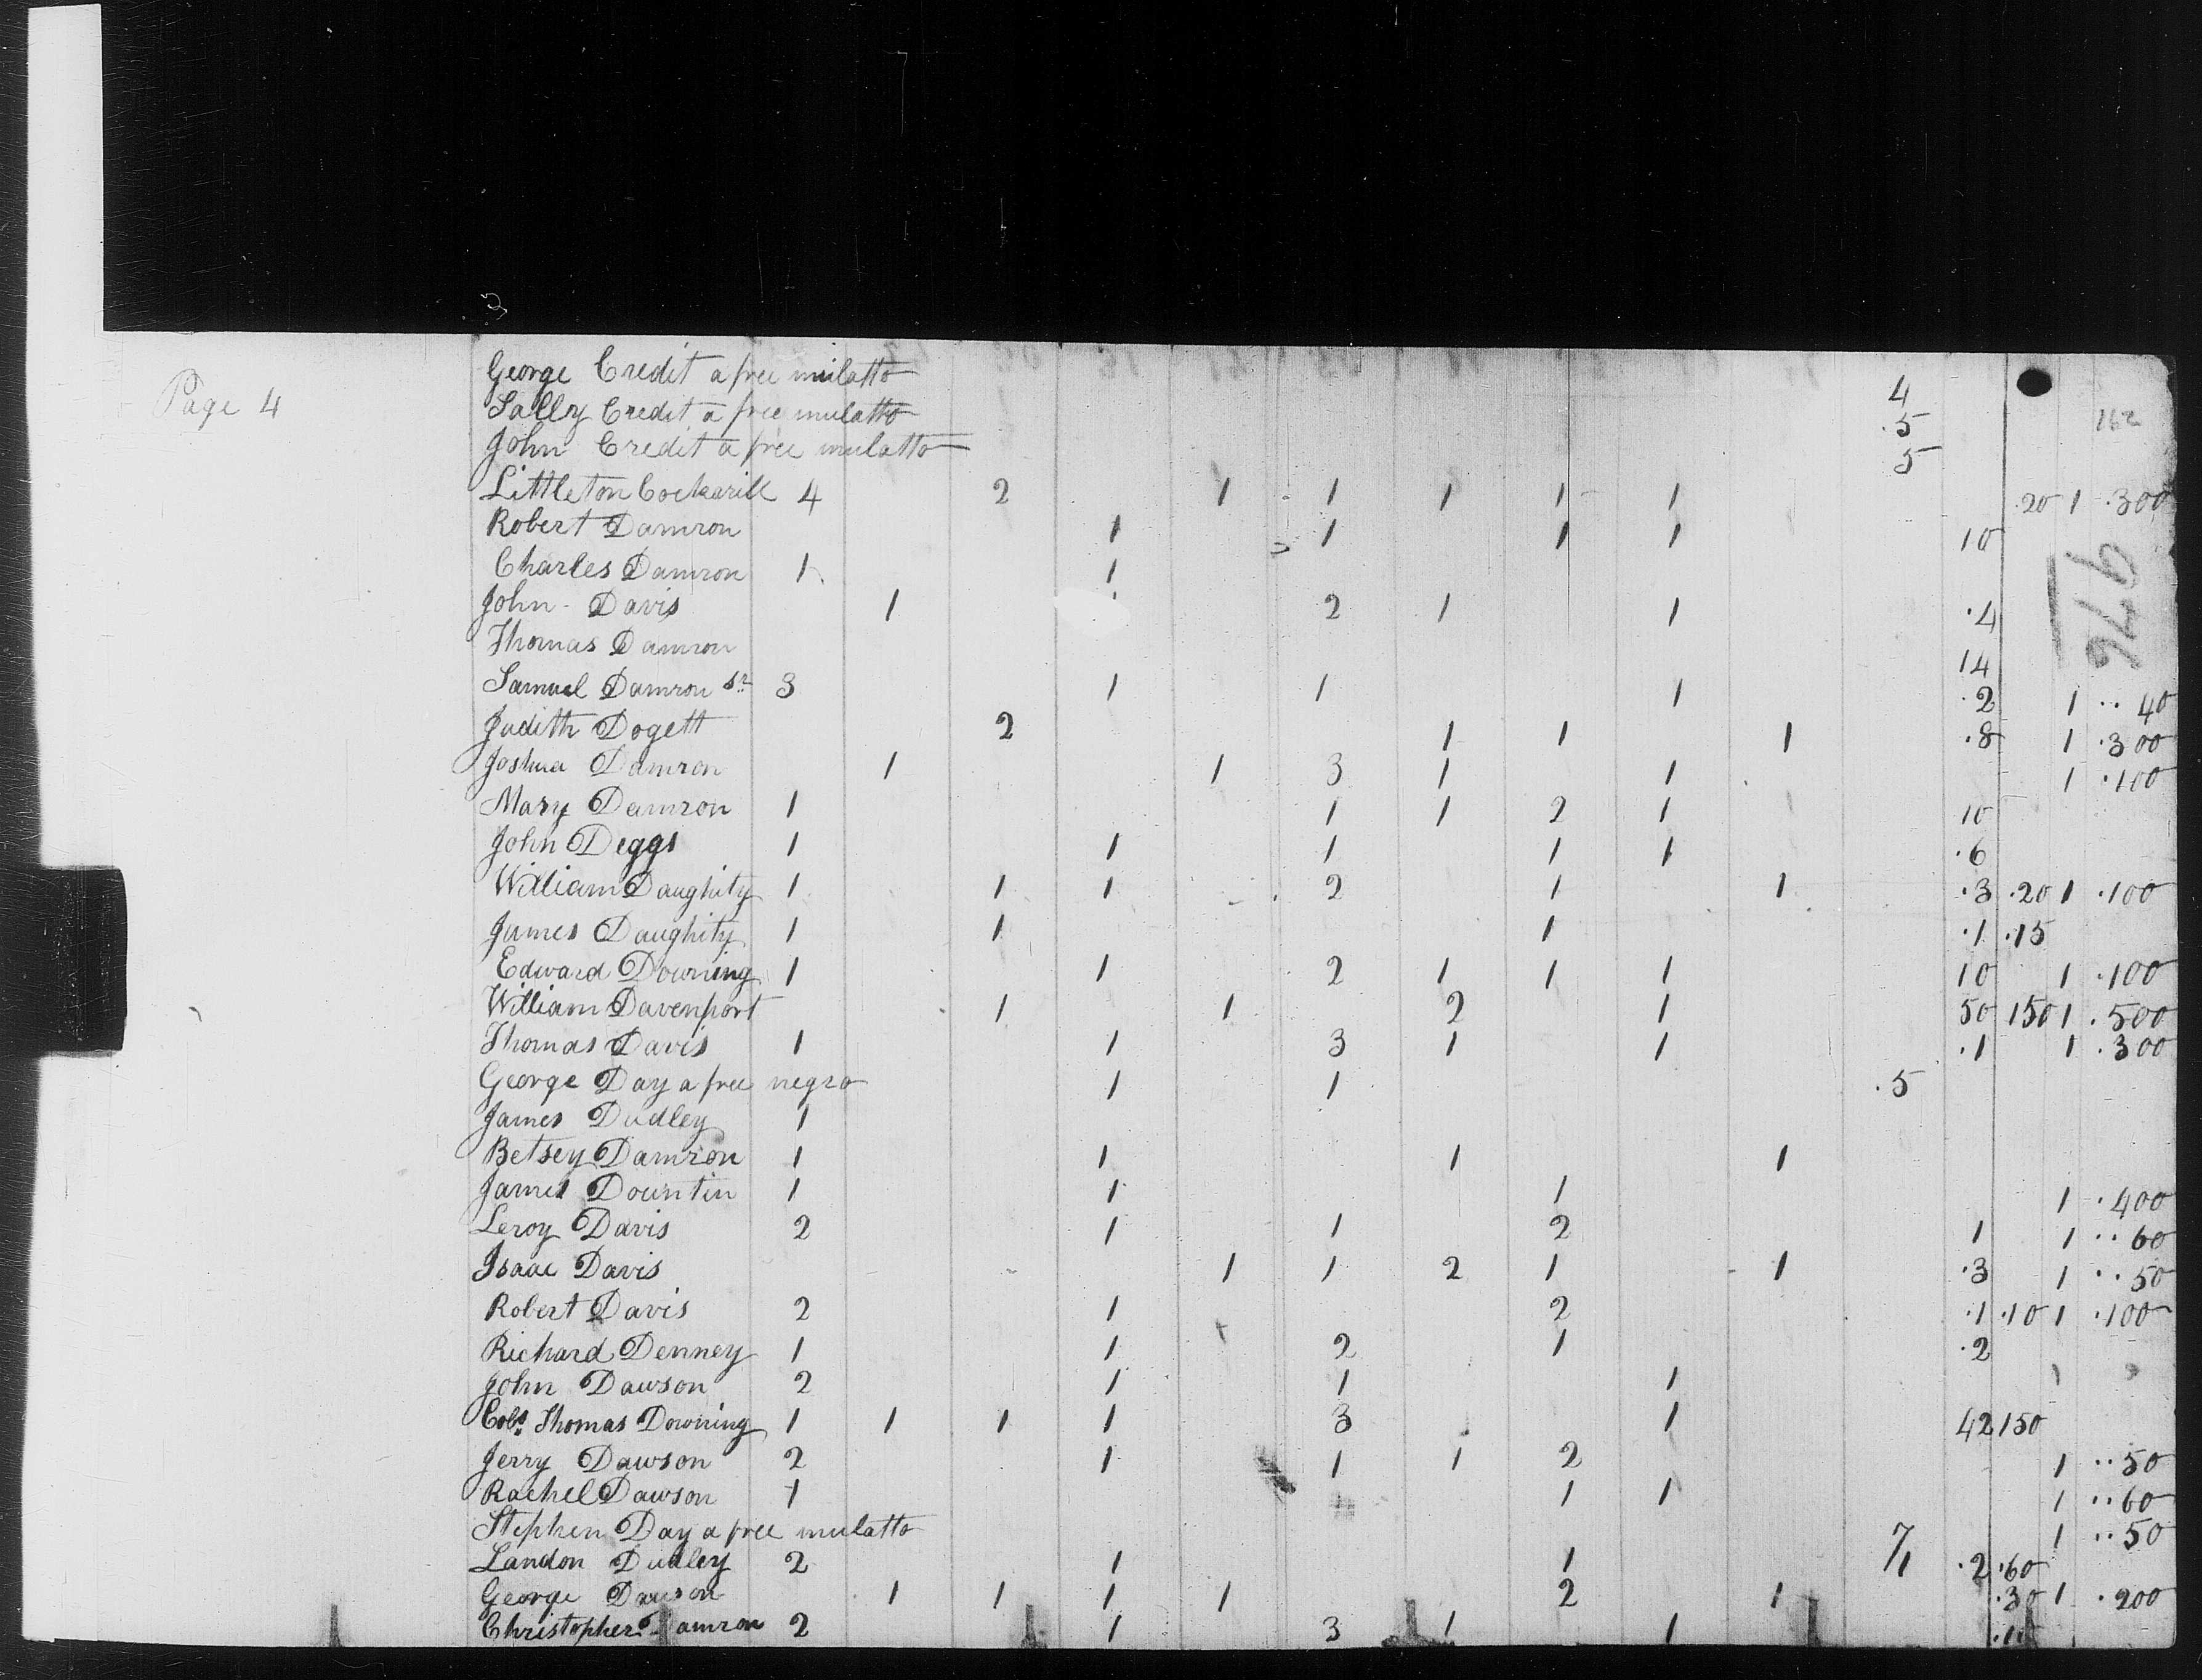 Page 4
162
976
George Credit a free mulatto 4
Sally Credit a free mulatto .5
John Credit a free mulatto 5
Littleton Cockarill 4 2 1 1 1 1 1 .20 1 .300
Robert Damron 1 1 1 1 10
Charles Damron 1 1
John Davis 1 1 2 1 1 .4
Thomas Damron 14
Samuel Damron Sr 3 1 1 1 .2 1 .. 40
Judith Dogett 2 1 1 1 .8 1 .300
Joshua Damron 1 1 3 1 1 1 .100
Mary Damron 1 1 1 2 1 10
John Deggs 1 1 1 1 1 .6
William Daughity 1 1 1 2 1 1 .3 .20 1 .100
James Daughity 1 1 1 .1 .15
Edward Downing 1 1 2 1 1 1 10 1 .100
William Davenport 1 1 2 1 50 150 1 .500
Thomas Davis 1 1 3 1 1 .1 1 .300
George Day a free negro 1 1 .5
James Dudley 1
Betsey Damron 1 1 1 1
James Downtin 1 1 1 1 .400
Leroy Davis 2 1 1 2 1 1 .. 60
Isaac Davis 1 1 2 1 1 .3 1 .. 50
Robert Davis 2 1 2 .1 .10 1 .100
Richard Denney 1 1 2 1 .2
John Dawson 2 1 1 1
Colo. Thomas Downing 1 1 1 1 3 1 42 150
Jerry Dawson 2 1 1 1 2 1 .. 50
Rachel Dawson 1 1 1 1 .. 60
Stephen Day a free mulatto 7 1 .. 50
Landon Dudley 2 1 1 1 .2 .60
George Dawson 1 1 1 1 2 1 .30 1 .200
Christopher Damron 2 1 3 1 1